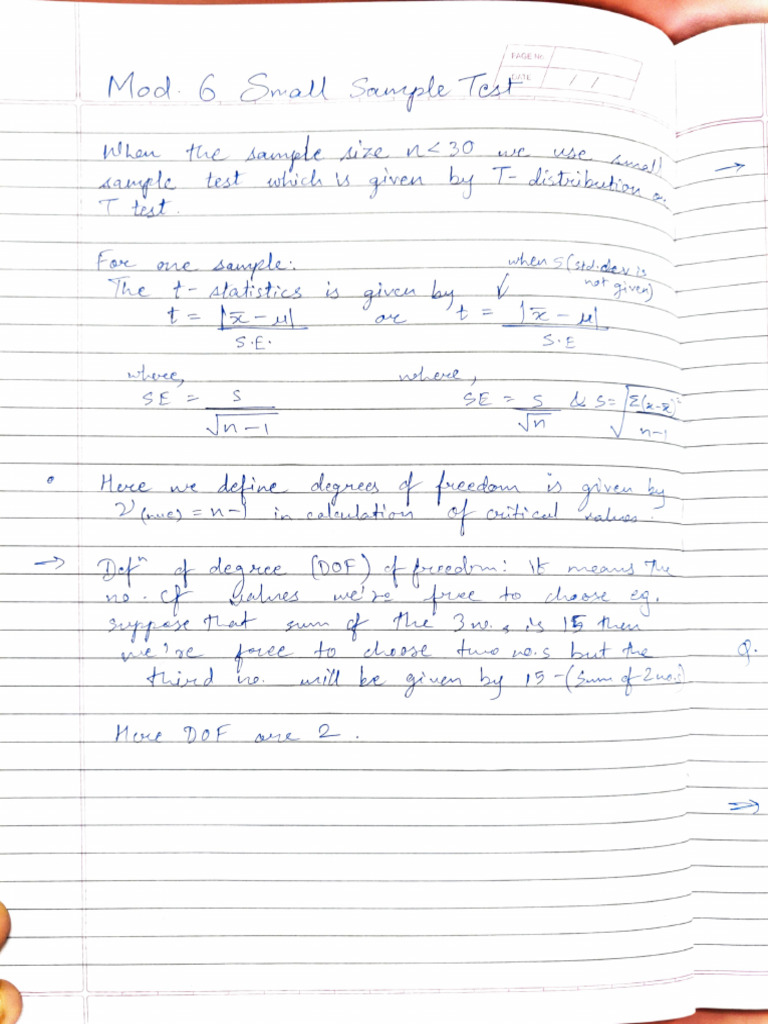 PAGE NO.
DATE / /
Mod. 6 Small Sample Test
When the sample size n<30 we use small
sample test which is given by T-distribution or
T test.
For one sample:
when s (std. dev is
not given)
The t-statistics is given by
t = |x̄ - μ| / S.E. or t = |x̄ - μ| / S.E
where, where,
SE = s / √n-1 SE = s / √n & s = √Σ(x-x̄)² / n-1
Here we define degrees of freedom is given by
ν (nue) = n-1 in calculation of critical values.
→ Defⁿ of degree (DOF) of freedom: It means the
no. of values we're free to choose eg.
suppose that sum of the 3 no.s is 15 then
we're free to choose two no.s but the
third no. will be given by 15-(Sum of 2 no.s)
Here DOF are 2.
Q.